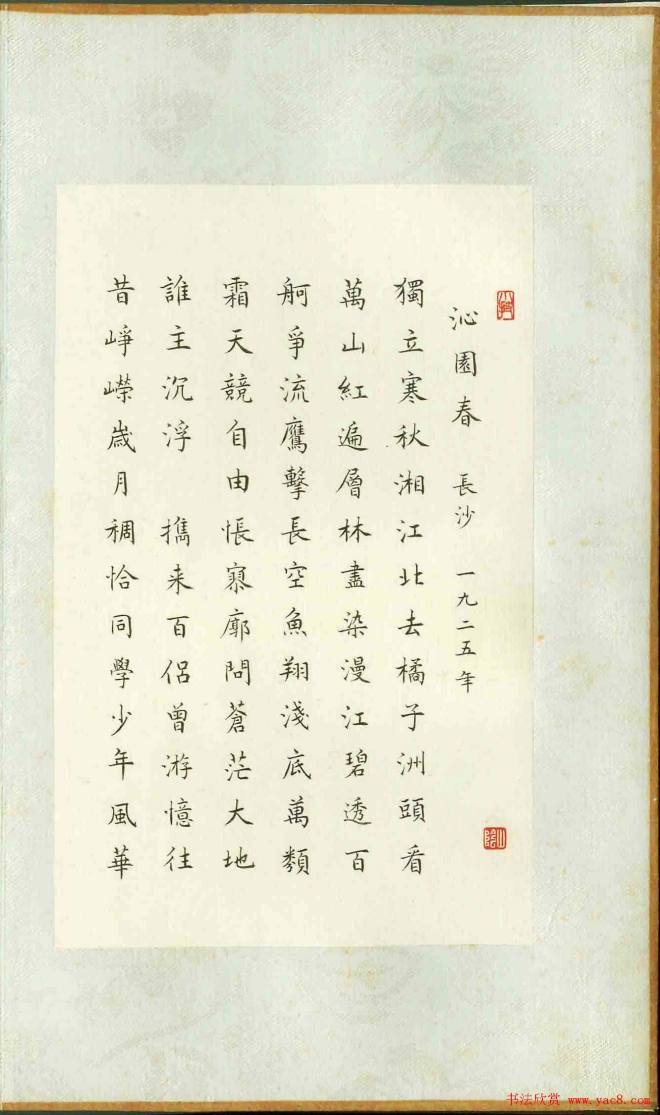 沁園春 長沙 一九二五年
獨立寒秋湘江北去橘子洲頭看
萬山紅遍層林盡染漫江碧透百
舸爭流鷹擊長空魚翔淺底萬類
霜天競自由悵寥廓問蒼茫大地
誰主沉浮 攜来百侶曾游憶往
昔崢嶸歲月稠恰同學少年風華
山陰
书法欣赏 www.yac8.com